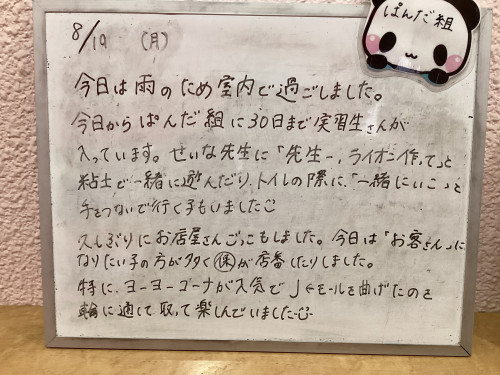 ぱんだ組
8/19 (月)
今日は雨のため室内で過ごしました。
今日からぱんだ組に30日まで実習生さんが
入っています。せいな先生に「先生ー、ライオン作って」と
粘土で一緒に遊んだり、トイレの際に、「一緒にいこ」と
手をつないで行く子もいました
久しぶりにお店屋さんごっこもしました。今日は「お客さん」に
なりたい子の方が多く保が店番したりしました。
特に、ヨーヨーコーナが人気でJ←モールを曲げたのを
輪に通して取って楽しんでいました